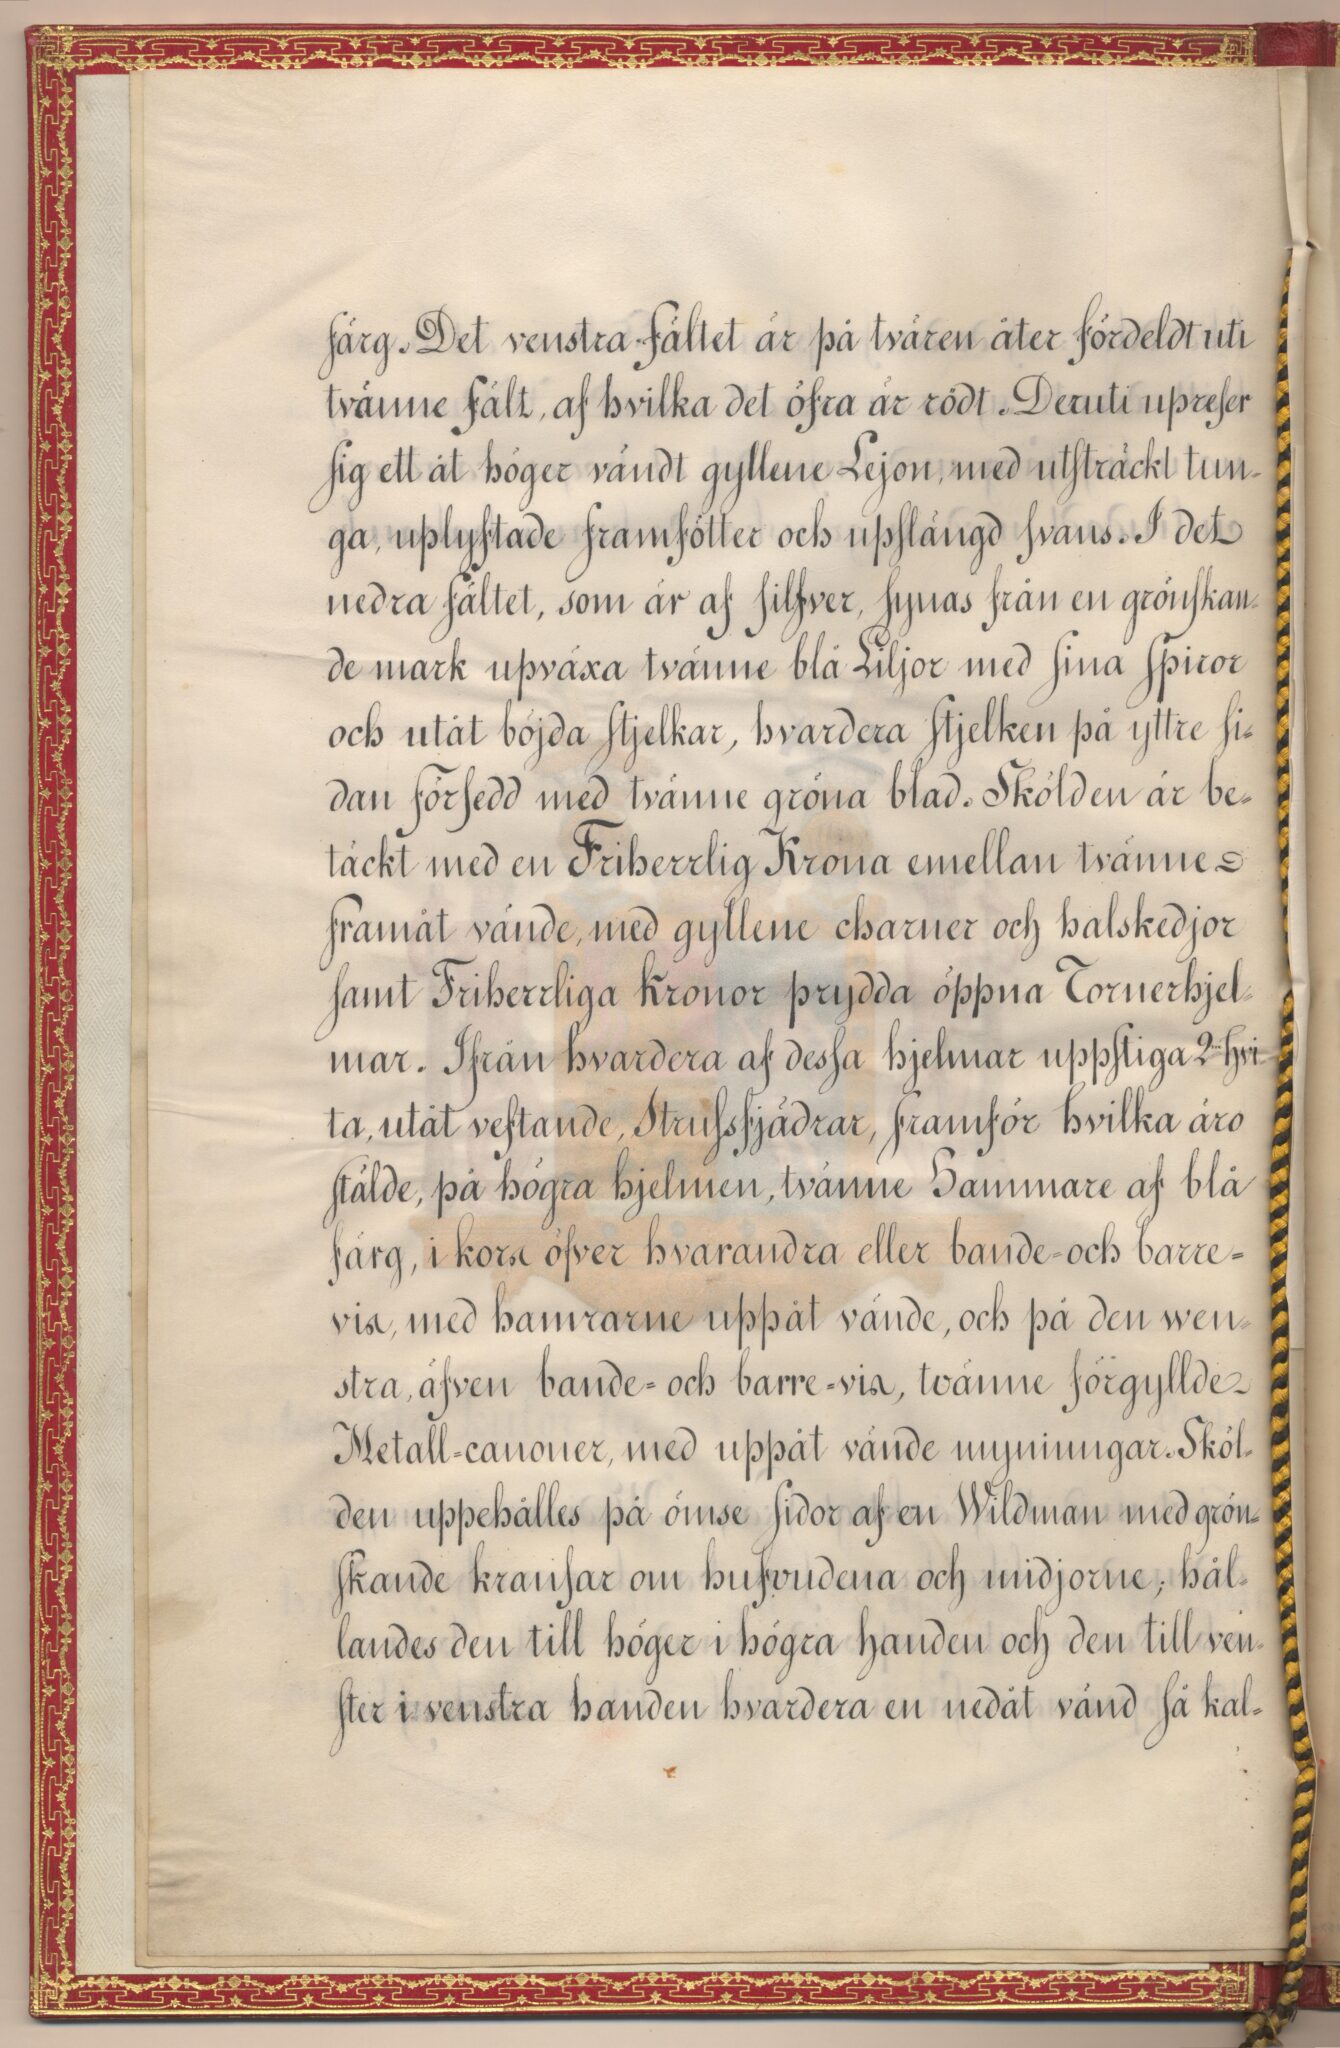 färg. Det venstra fältet är på tvären åter fördeldt uti
tvänne fält, af hvilka det öfra är rödt. Deruti upreser
sig ett åt höger vändt gyllene Lejon, med utsträckt tun-
ga, uplyftade framfötter och upslängd svans. I det
nedra fältet, som är af silfver, synas från en grönskan-
de mark upväxa tvänne blå Liljor med sina spiror
och utåt böjda stjelkar, hvardera stjelken på yttre si-
dan försedd med tvänne gröna blad. Skölden är be-
täckt med en Friherrlig Krona emellan tvänne
framåt vände, med gyllene charner och halskedjor
samt Friherrliga Kronor prydda öppna Tornerhjel-
mar. Ifrån hvardera af dessa hjelmar uppstiga 2ne hvi-
ta, utåt veftande, Strussfjädrar, framför hvilka äro
stälde, på högra hjelmen, tvänne Hammare af blå
färg, i kors öfver hvarandra eller bande- och barre-
vis, med hamrarne uppåt vände, och på den wen-
stra, äfven bande- och barre-vis, tvänne förgyllde
Metall-canoner, med uppåt vände myningar. Sköl-
den uppehålles på ömse sidor af en Wildman med grön-
skande kransar om hufvudena och midjorne; hål-
landes den till höger i högra handen och den till ven-
ster i venstra handen hvardera en nedåt vänd så kal-